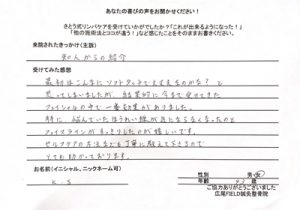 あなたの喜びの声をお聞かせください！
さとう式リンパケアを受けていかがでしたか？「これが出来るようになった！」
「他の施術法とココが違う！」など感じたことをそのままお書きください。
来院されたきっかけ（主訴）
知人からの紹介
受けてみた感想
最初はこんなにソフトタッチで大丈夫なのかな？と
思ってしまいましたが、結果的に今まで受けてきた
フェイシャルの中で一番効果がありました。
特に悩んでいたほうれい線が目立たなくなったのと
フェイスラインがすっきりしたのが嬉しいです。
セルフケアの方法なども丁寧に教えて下さるので
とても助かっております。
お名前（イニシャル、ニックネーム可）
K.S
性別 男・女
年齢 43 歳
ご協力ありがとうございました
広尾FIELD鍼灸整骨院